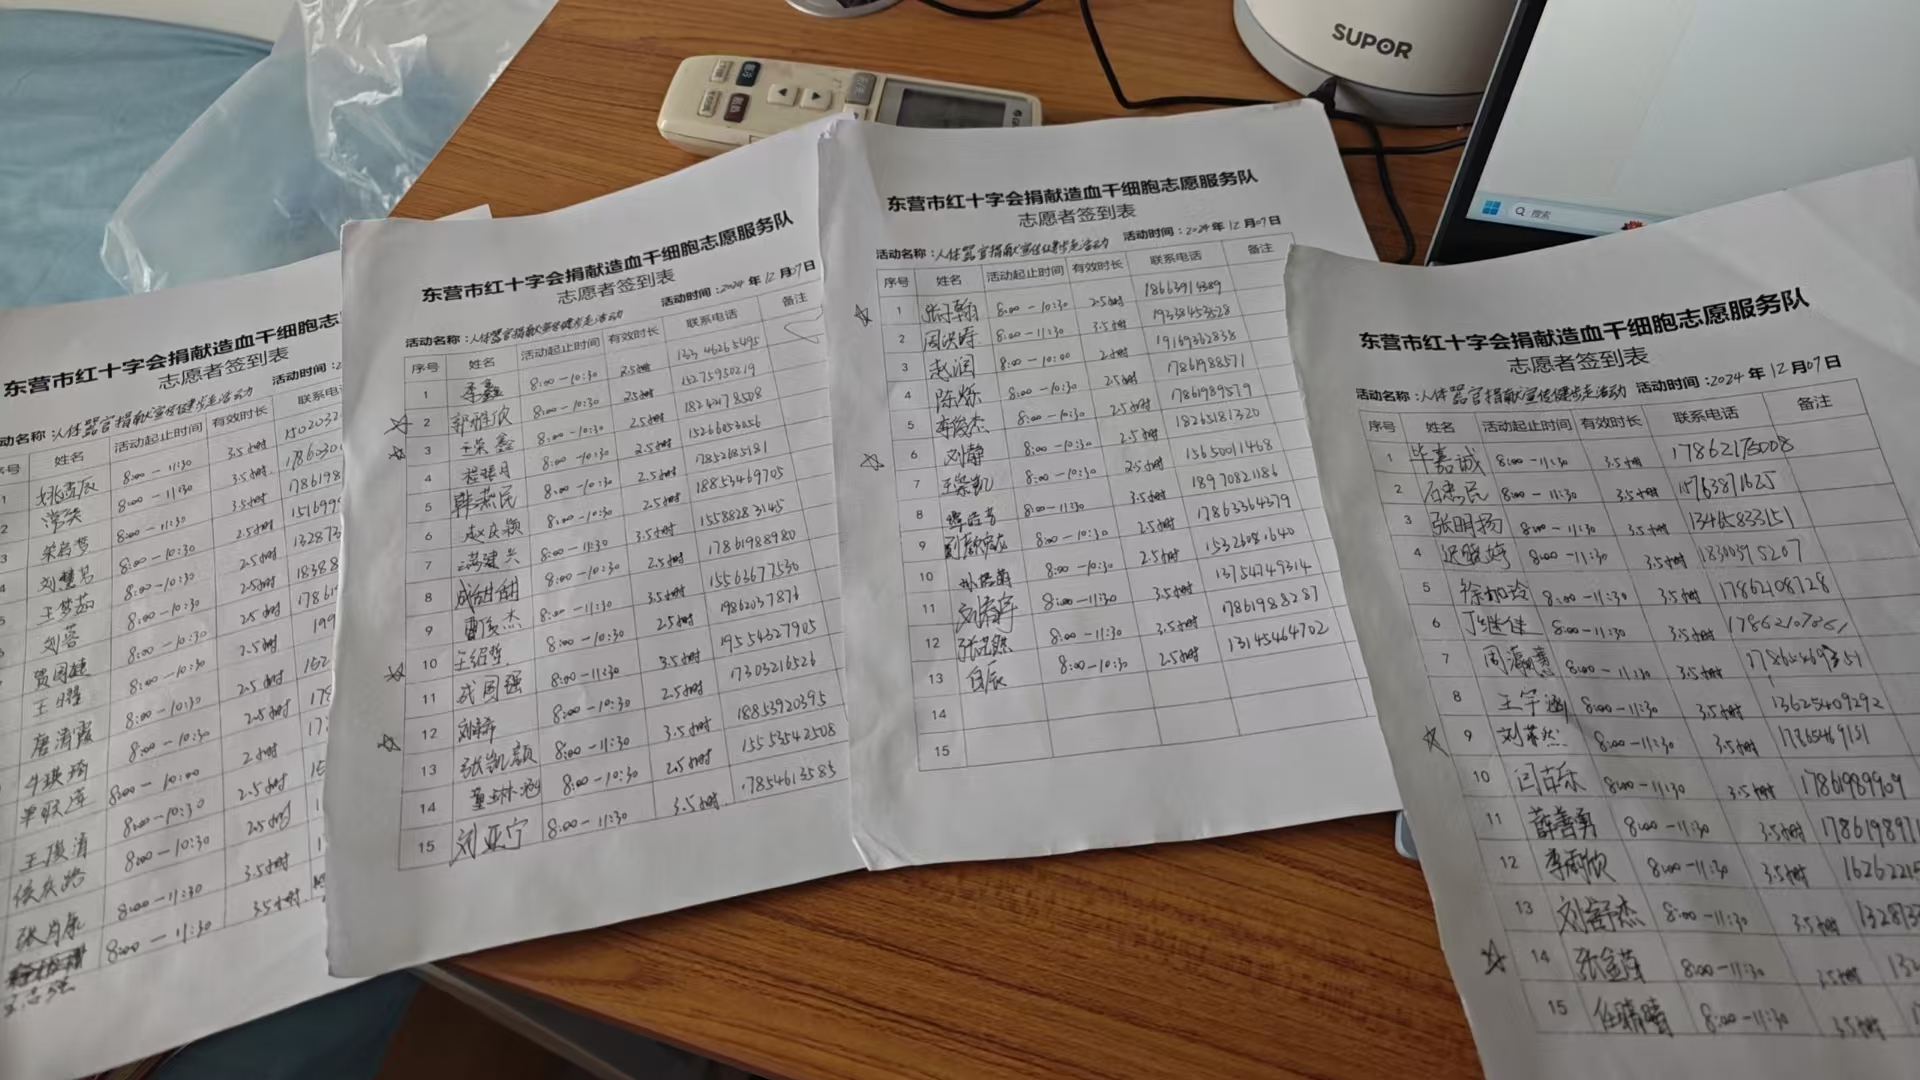 SUPOR
搜索
东营市红十字会捐献造血干细胞志
志愿者签到表
动名称：人体器官捐献宣传健步走活动 活动时间：2
号 姓名 活动起止时间 有效时长 联系电
8:00-11:30 3.5小时
8:00-11:30 3.5小时
8:00-11:30 3.5小时
8:00-10:30 2.5小时
王梦茹 8:00-10:30 2.5小时
刘蓉 8:00-10:30 2.5小时
8:00-10:30 2.5小时
王曜 8:00-10:30
唐清霞 8:00-10:30 2.5小时
牛琪琦 8:00-10:30 2.5小时
单联滨 8:00-10:00 2小时
8:00-10:30 2.5小时
侯庆路 8:00-10:30 2.5小时
张肖康 8:00-11:30 3.5小时
王志强 8:00-11:30 3.5小时
东营市红十字会捐献造血干细胞志愿服务队
志愿者签到表
活动名称：人体器官捐献宣传健步走活动 活动时间：2024 年 12 月 07 日
序号 姓名 活动起止时间 有效时长 联系电话 备注
1 李鑫 8:00-10:30 2.5小时 13346265495
2 郭雅欣 8:00-10:30 2.5小时 15275950219
3 王荣鑫 8:00-10:30 2.5小时 18242178508
4 8:00-10:30 2.5小时 15266053056
5 韩燕民 8:00-10:30 2.5小时 17852685181
6 赵庆颖 8:00-10:30 2.5小时 18853469705
7 冯建兴 8:00-11:30 3.5小时 15588283145
8 成甜甜 8:00-10:30 2.5小时 17861988980
9 曹俊杰 8:00-11:30 3.5小时 15563677530
10 王绍哲 8:00-10:30 2.5小时 19862037876
11 战国强 8:00-11:30 3.5小时 19554327905
12 刘梓 8:00-10:30 2.5小时 17303216526
13 张凯颖 8:00-11:30 3.5小时 18853920395
14 董琳涵 8:00-10:30 2.5小时 15553542508
15 刘亚宁 8:00-11:30 3.5小时 17854613585
东营市红十字会捐献造血干细胞志愿服务队
志愿者签到表
活动名称：人体器官捐献宣传健步走活动 活动时间：2024 年 12 月 07 日
序号 姓名 活动起止时间 有效时长 联系电话 备注
1 张子翰 8:00-10:30 2.5小时 18663914389
2 周洪涛 8:00-11:30 3.5小时 19338453528
3 赵润 8:00-10:00 2小时 19169362838
4 陈烁 8:00-10:30 2.5小时 17861988571
5 李俊杰 8:00-10:30 2.5小时 17861989579
6 刘静 8:00-10:30 2.5小时 18265181320
7 王荣凯 8:00-10:30 2.5小时 15650011468
8 8:00-11:30 3.5小时 18970821186
9 8:00-10:30 2.5小时 17863364379
10 8:00-10:30 2.5小时 15326081640
11 8:00-11:30 3.5小时 13754749314
12 8:00-11:30 3.5小时 17861988287
13 白辰 8:00-10:30 2.5小时 13145464702
14
15
东营市红十字会捐献造血干细胞志愿服务队
志愿者签到表
活动名称：人体器官捐献宣传健步走活动 活动时间：2024 年 12 月 07 日
序号 姓名 活动起止时间 有效时长 联系电话 备注
1 毕嘉诚 8:00-11:30 3.5小时 17862175008
2 石忠民 8:00-11:30 3.5小时 15763871625
3 张明扬 8:00-11:30 3.5小时 13465833151
4 迟晓婷 8:00-11:30 3.5小时 18300395207
5 徐加玲 8:00-11:30 3.5小时 17862108728
6 丁继佳 8:00-11:30 3.5小时 17862107861
7 周潇慧 8:00-11:30 3.5小时
8 王宇涵 8:00-11:30 3.5小时 13625409292
9 刘蒙然 8:00-11:30 3.5小时
10 闫苗乐 8:00-11:30 3.5小时 17861989909
11 薛善勇 8:00-11:30 3.5小时 1786198971
12 李雨欣 8:00-11:30 3.5小时 1626221
13 刘舒杰 8:00-11:30 3.5小时 132873
14 张金萍 8:00-11:30 3.5小时 132
15 任晴晴 8:00-11:30 3.5小时